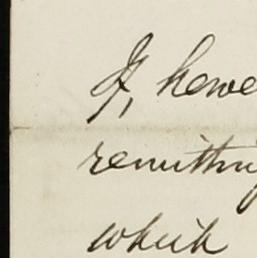 If, howe
remittin
which